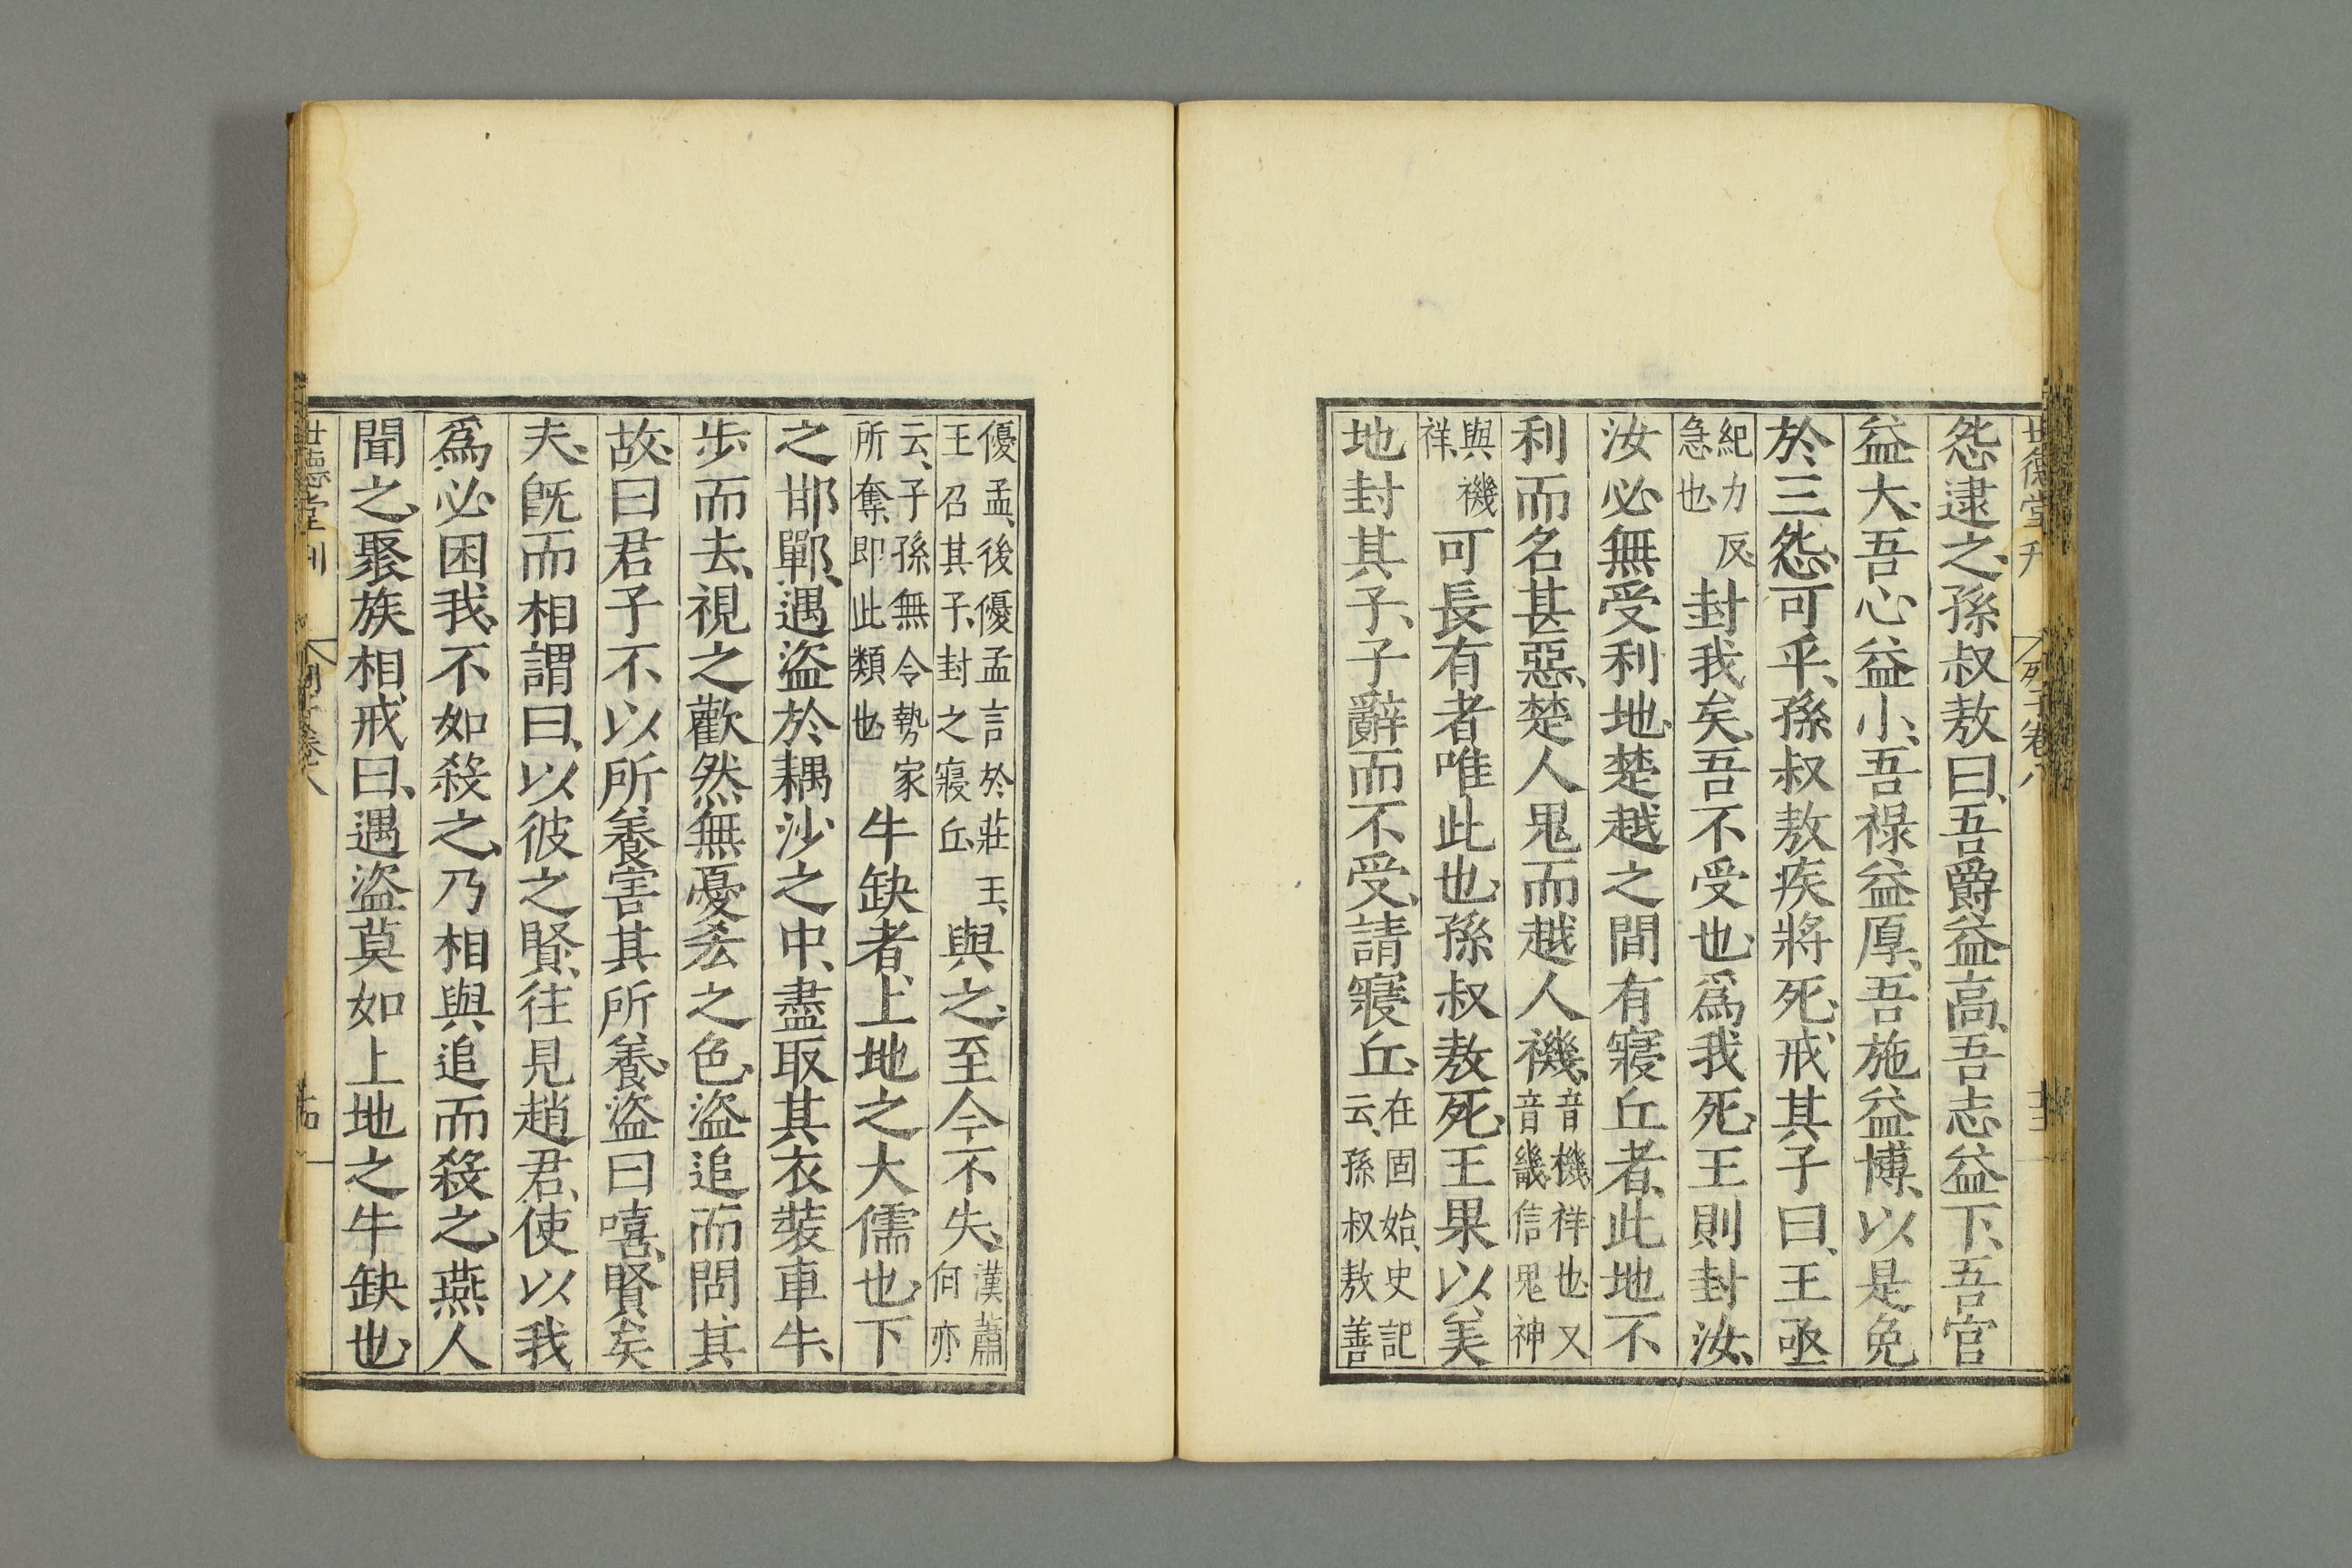 世德堂刊 列子卷八
怨逮之、孫叔敖曰、吾爵益高、吾志益下、吾官
益大、吾心益小、吾祿益厚、吾施益博、以是免
於三怨、可乎、孫叔敖疾將死、戒其子曰、王亟
紀力反
急也
封我矣、吾不受也、爲我死、王則封汝、
汝必無受利地、楚越之間有寢丘者、此地不
利而名甚惡、楚人鬼而越人禨、
音機祥也又
音畿信鬼神
與禨
祥、
可長有者唯此也、孫叔敖死、王果以美
地封其子、子辭而不受、請寢丘、
在固始、史記
云、孫叔敖善
優孟、後優孟言於莊王、
王召其子、封之寢丘、
與之、至今不失、
漢蕭
何亦
云、子孫無令勢家
所奪、即此類也
牛缺者、上地之大儒也、下
之邯鄲、遇盜於耦沙之中、盡取其衣裝車牛、
步而去、視之歡然無憂吝之色、盜追而問其
故、曰君子不以所養害其所養、盜曰嘻、賢矣
夫、旣而相謂曰、以彼之賢、往見趙君、使以我
爲、必困我、不如殺之、乃相與追而殺之、燕人
聞之、聚族相戒曰、遇盜莫如上地之牛缺也、
世德堂刊 卷八